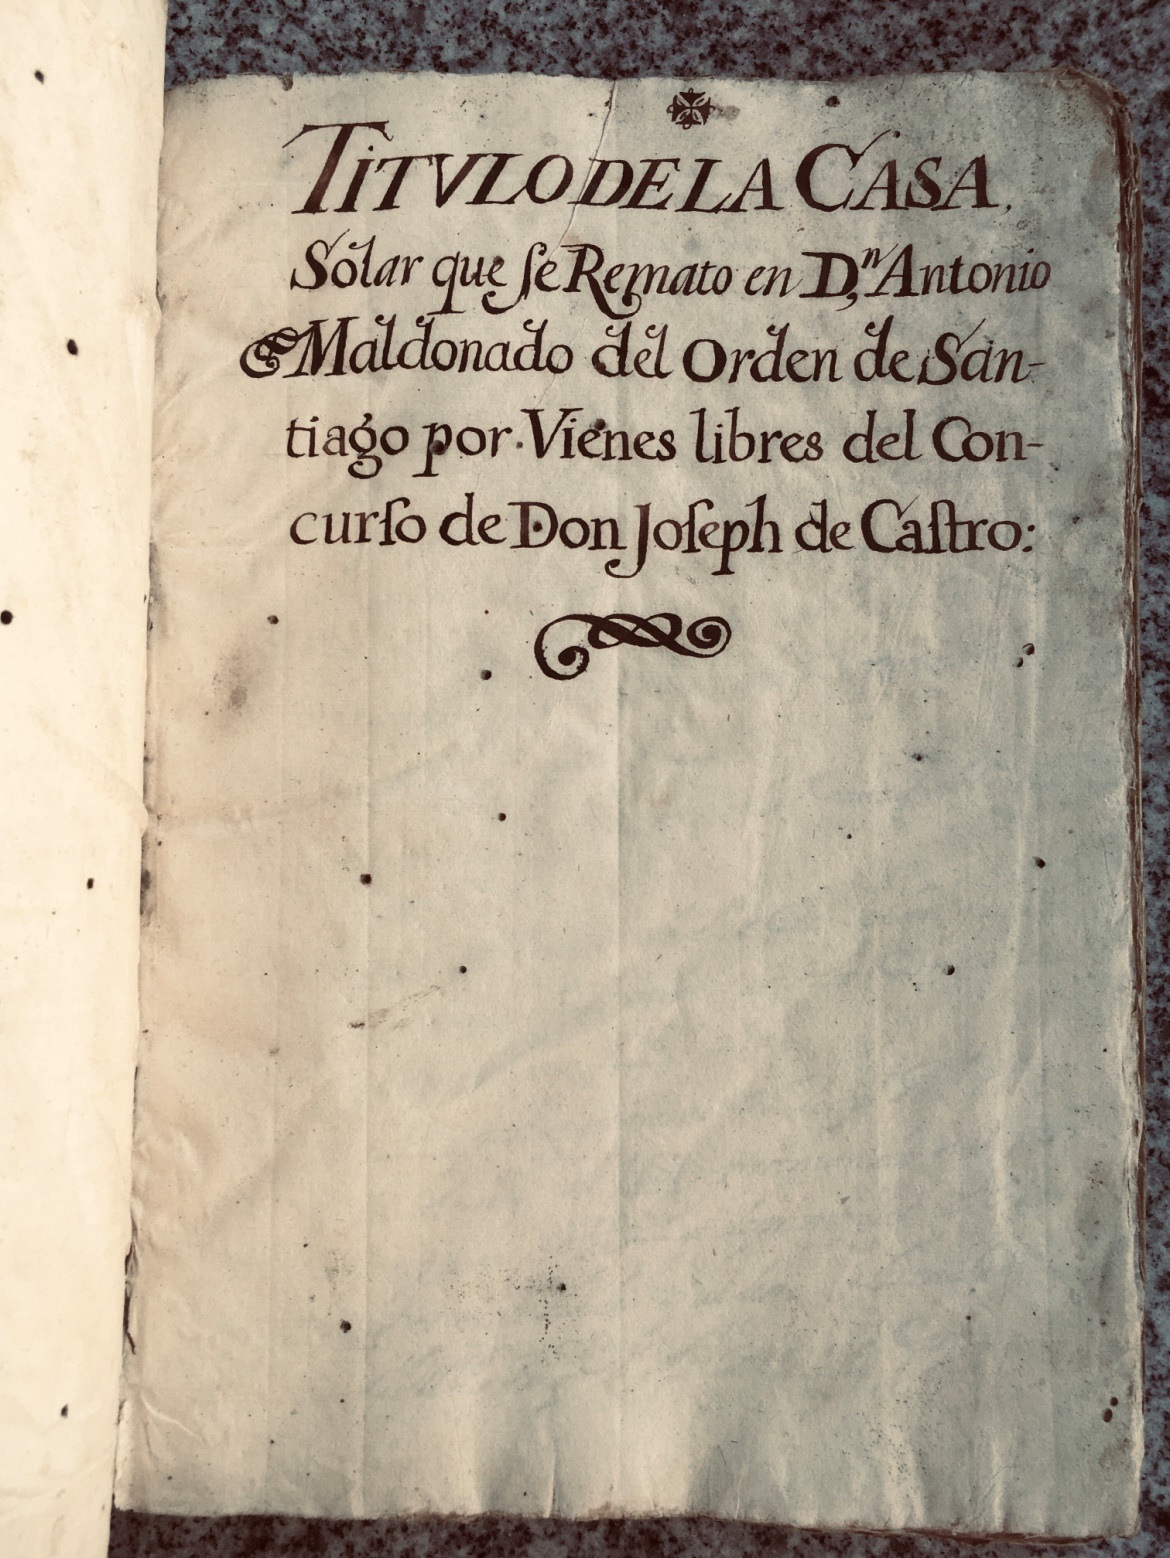 TITVLO DE LA CASA
Solar que ſe Remato en D.ⁿ Antonio
Maldonado del Orden de San-
tiago por Vienes libres del Con-
curſo de Don Joſeph de Caſtro: